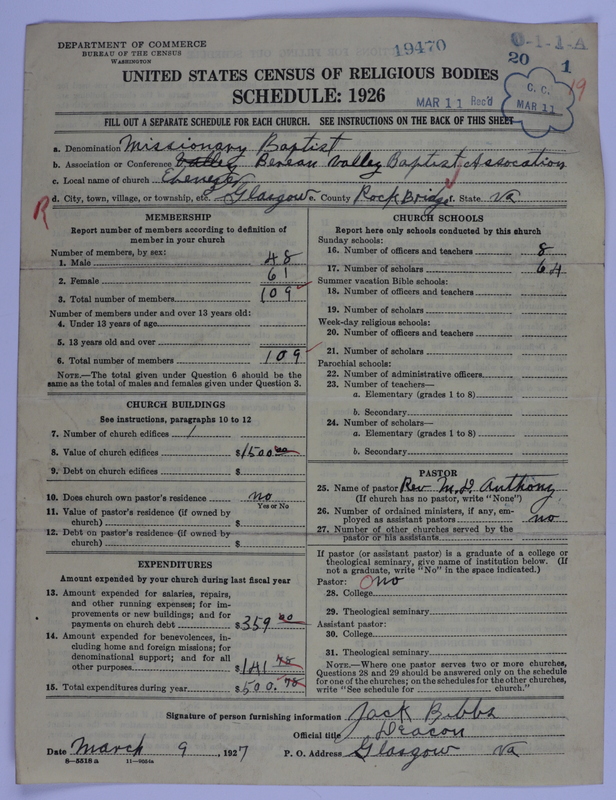 DEPARTMENT OF COMMERCE
BUREAU OF THE CENSUS
WASHINGTON
19470
0-1-1-A
20 1
UNITED STATES CENSUS OF RELIGIOUS BODIES
SCHEDULE: 1926
MAR 11 Rec'd
C. C.
MAR 11
19
FILL OUT A SEPARATE SCHEDULE FOR EACH CHURCH. SEE INSTRUCTIONS ON THE BACK OF THIS SHEET
a. Denomination Missionary Baptist
b. Association or Conference Valley Berean Valley Baptist Assocation
c. Local name of church Ebenezer
d. City, town, village, or township, etc. Glasgow e. County Rock Bridge f. State Va
R
MEMBERSHIP
Report number of members according to definition of
member in your church
Number of members, by sex:
1. Male 48
2. Female 61
3. Total number of members 109
Number of members under and over 13 years old:
4. Under 13 years of age
5. 13 years old and over
6. Total number of members 109
NOTE.—The total given under Question 6 should be the
same as the total of males and females given under Question 3.
CHURCH BUILDINGS
See instructions, paragraphs 10 to 12
7. Number of church edifices 1
8. Value of church edifices $1500.00
9. Debt on church edifices $
10. Does church own pastor's residence no
Yes or No
11. Value of pastor's residence (if owned by
church) $
12. Debt on pastor's residence (if owned by
church) $
EXPENDITURES
Amount expended by your church during last fiscal year
13. Amount expended for salaries, repairs,
and other running expenses; for im-
provements or new buildings; and for
payments on church debt $359 00
14. Amount expended for benevolences, in-
cluding home and foreign missions; for
denominational support; and for all
other purposes $141 78
15. Total expenditures during year $500.78
CHURCH SCHOOLS
Report here only schools conducted by this church
Sunday schools:
16. Number of officers and teachers 8
17. Number of scholars 64
Summer vacation Bible schools:
18. Number of officers and teachers
19. Number of scholars
Week-day religious schools:
20. Number of officers and teachers
21. Number of scholars
Parochial schools:
22. Number of administrative officers
23. Number of teachers—
a. Elementary (grades 1 to 8)
b. Secondary
24. Number of scholars—
a. Elementary (grades 1 to 8)
b. Secondary
PASTOR
25. Name of pastor Rev. M.D. Anthony
(If church has no pastor, write "None")
26. Number of ordained ministers, if any, em-
ployed as assistant pastors no
27. Number of other churches served by the
pastor or his assistants
If pastor (or assistant pastor) is a graduate of a college or
theological seminary, give name of institution below. (If
not a graduate, write "No" in the space indicated.)
Pastor: no
28. College
29. Theological seminary
Assistant pastor:
30. College
31. Theological seminary
NOTE.—Where one pastor serves two or more churches,
Questions 28 and 29 should be answered only on the schedule
for one of the churches; on the schedules for the other churches,
write "See schedule for church."
Signature of person furnishing information Jack Bibbs
Official title Deacon
Date March 9, 1927 P. O. Address Glasgow Va
8—5518 a 11—9034a